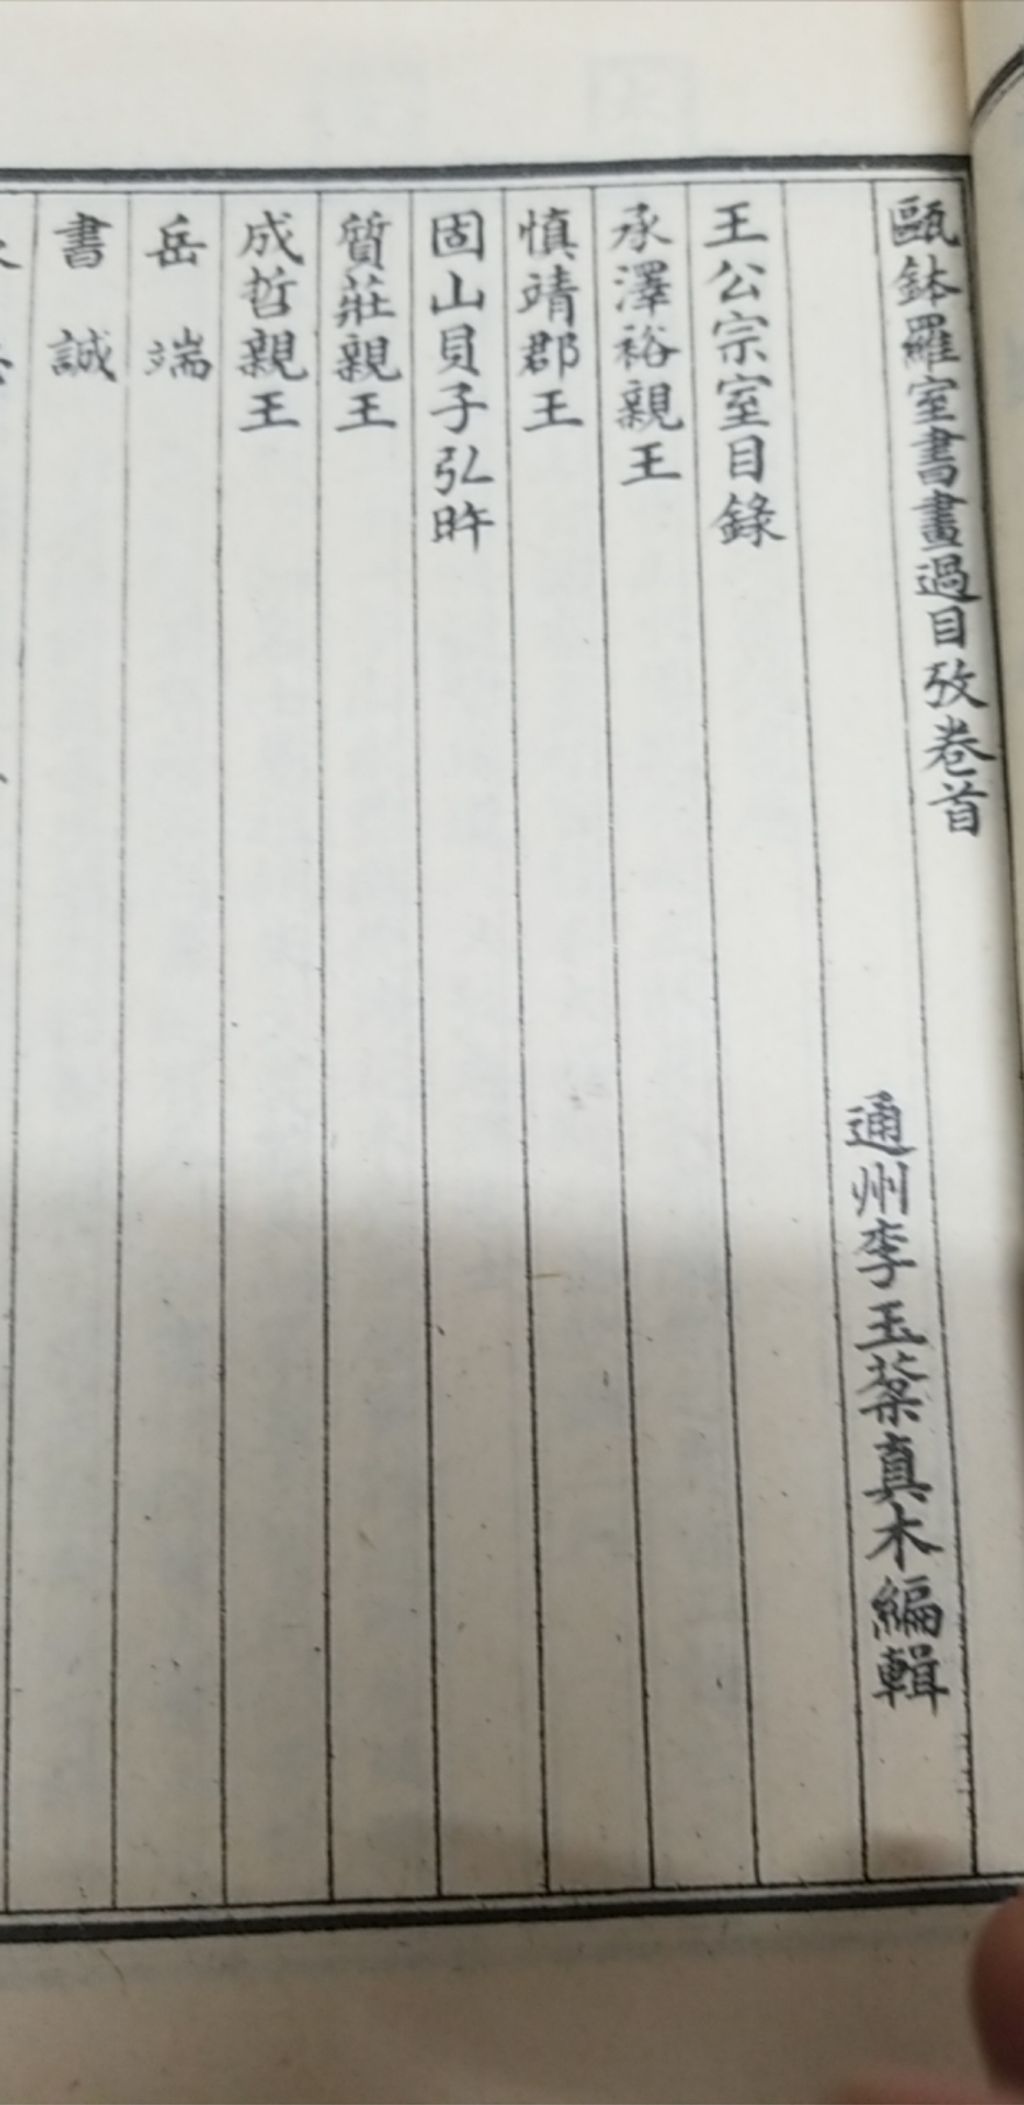 甌鉢羅室書畫過目攷卷首
通州李玉棻真木編輯
王公宗室目錄
承澤裕親王
慎靖郡王
固山貝子弘旿
質莊親王
成哲親王
岳端
書誠